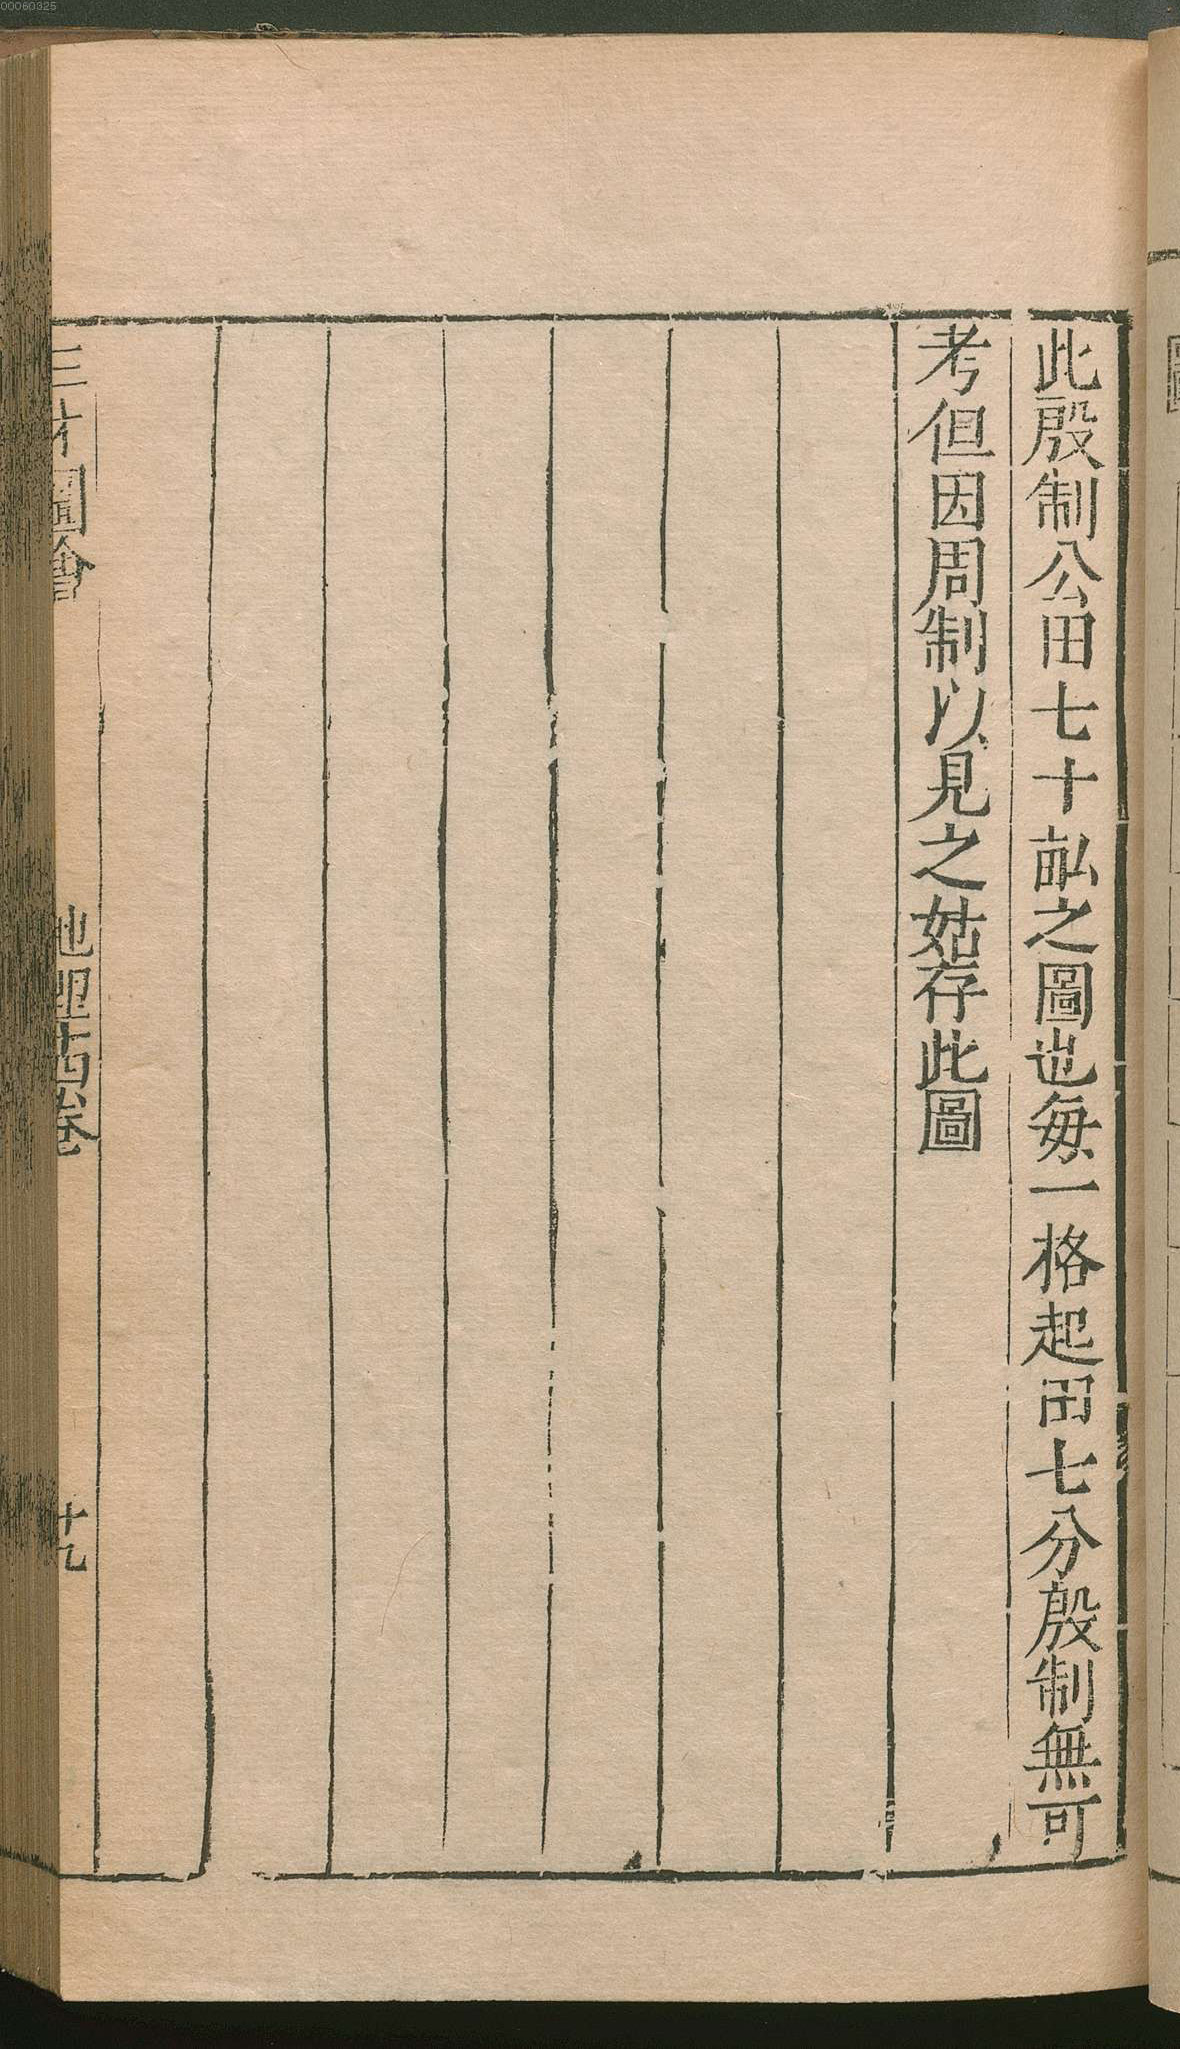 此殷制公田七十畝之圖也每一格起田七分殷制無可
考但因周制以見之姑存此圖
三才圖會
地理十四卷
十九
00060325